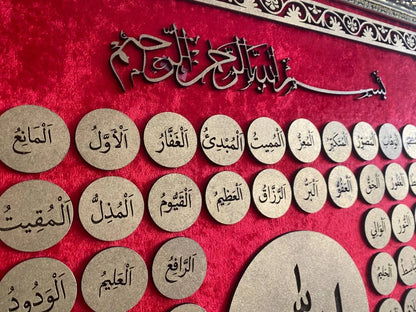 بسم الله الرحمن الرحيم
اَلْمَانِعُ اَلْأَوَّلُ اَلْغَفَّارُ اَلْمُبْدِئُ اَلْمُمِيتُ اَلْمُعِزُّ اَلْمُتَكَبِّرُ اَلْمُصَوِّرُ اَلْوَهَّابُ
اَلْمُقِيتُ اَلْمُذِلُّ اَلْقَيُّومُ اَلْعَظِيمُ اَلرَّزَّاقُ اَلْبَرُّ اَلْعَفُوُّ اَلْحَقُّ اَلْغَفُورُ
اَلْوَدُودُ اَلْعَلِيمُ اَلرَّافِعُ اَلْوَالِي اَلنُّورُ
اَلْحَلِيمُ
الله